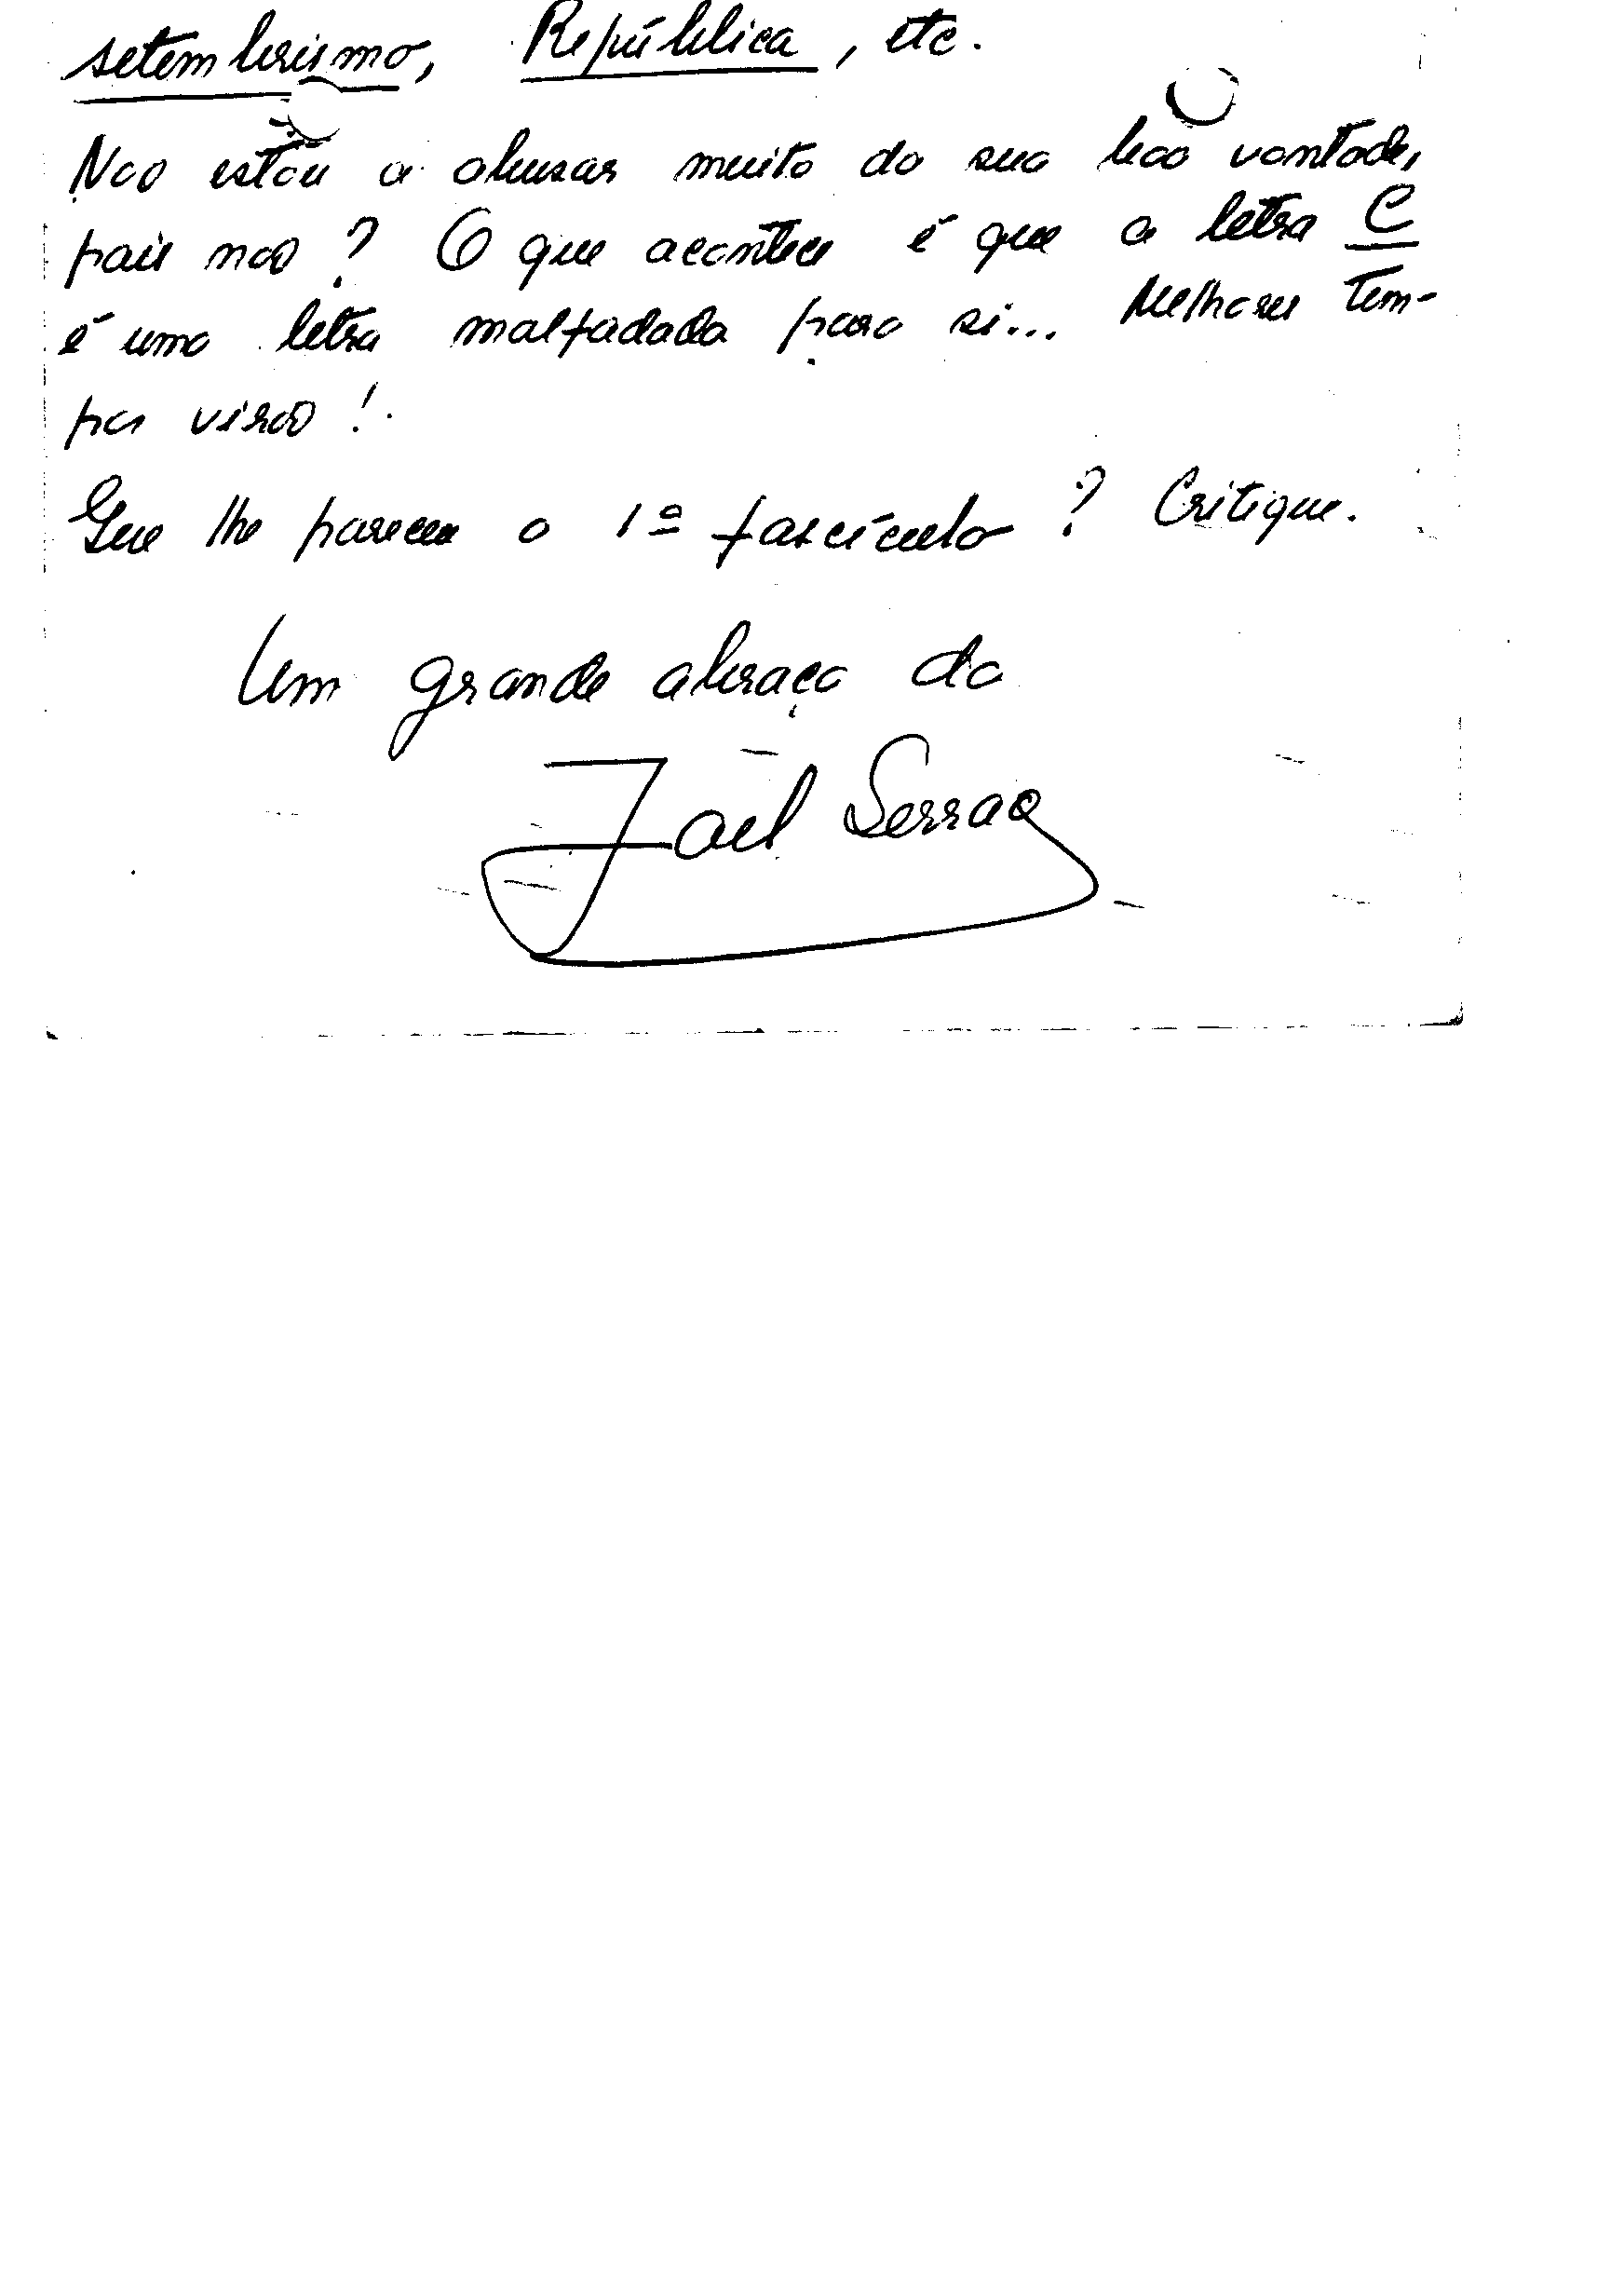 setembrismo, República, etc.
Não estou a abusar muito da sua boa vontade,
pois não? O que acontece é que a letra C
é uma letra malfadada para si... Melhores tem-
pos virão!
Que lhe pareceu o 1º fascículo? Critique.
Um grande abraço do
Joel Serrão